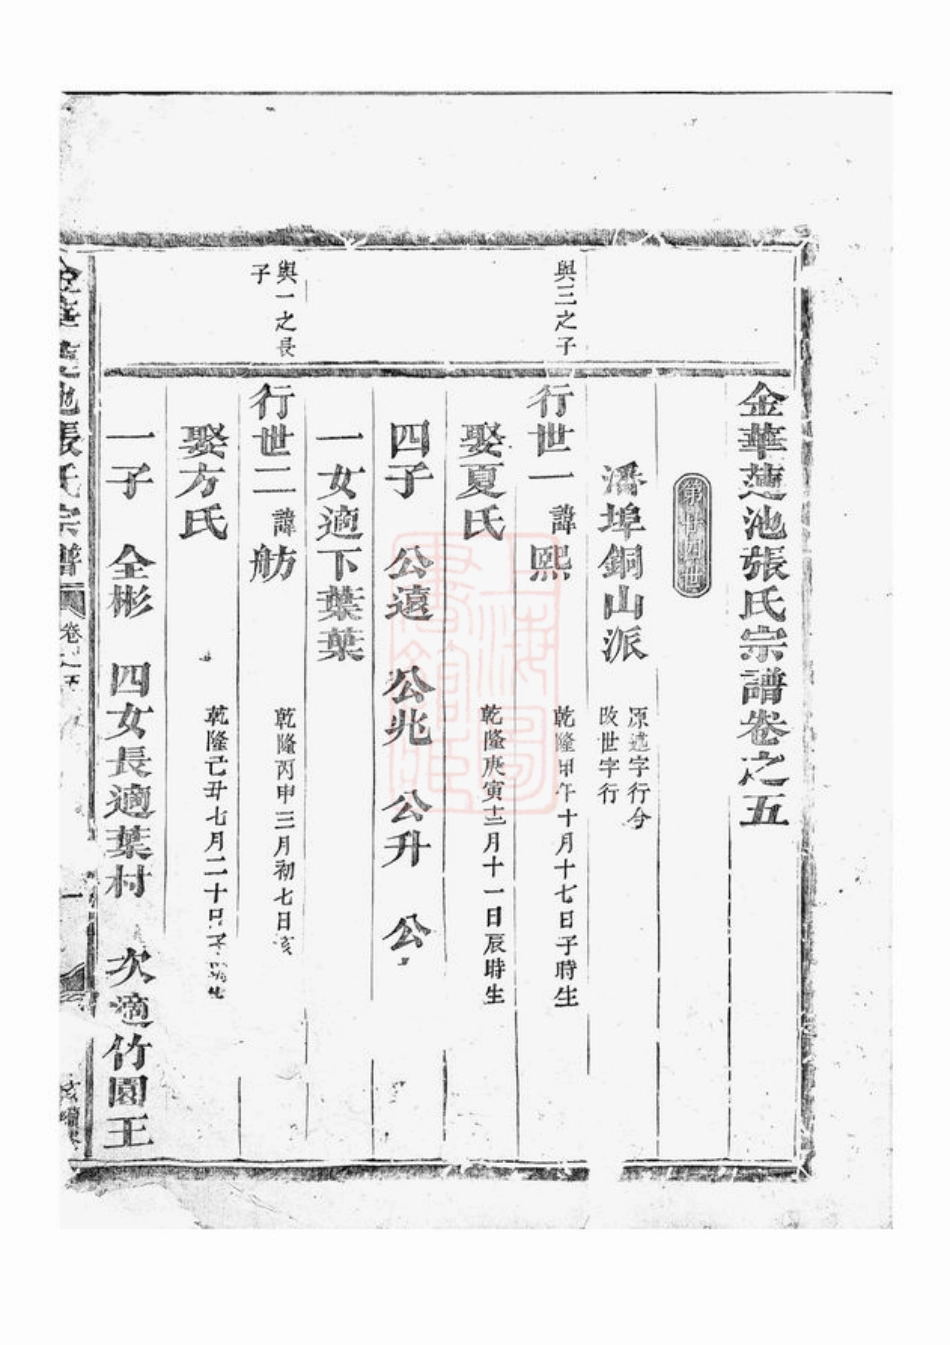 金華蓮池張氏宗譜卷之五
第廿四世
潘埠銅山派
原述字行今
改世字行
與三之子
行世一 諱熙 乾隆甲午十月十七日子時生
娶夏氏 乾隆庚寅十二月十一日辰時生
四子 公遠 公兆 公升 公
一女適下葉葉
與一之長
子
行世二 諱舫 乾隆丙申三月初七日亥
娶方氏 乾隆己丑七月二十日子
一子 全彬 四女長適葉村 次適竹園王
金華蓮池張氏宗譜 卷之五 一